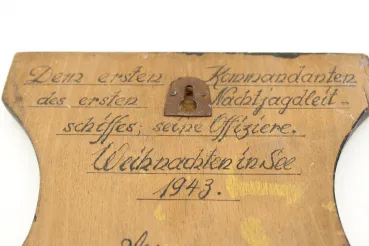 Dem ersten Kommandanten
des ersten Nachtjagdleit-
schiffes, seine Offiziere.
Weihnachten in See
1943.